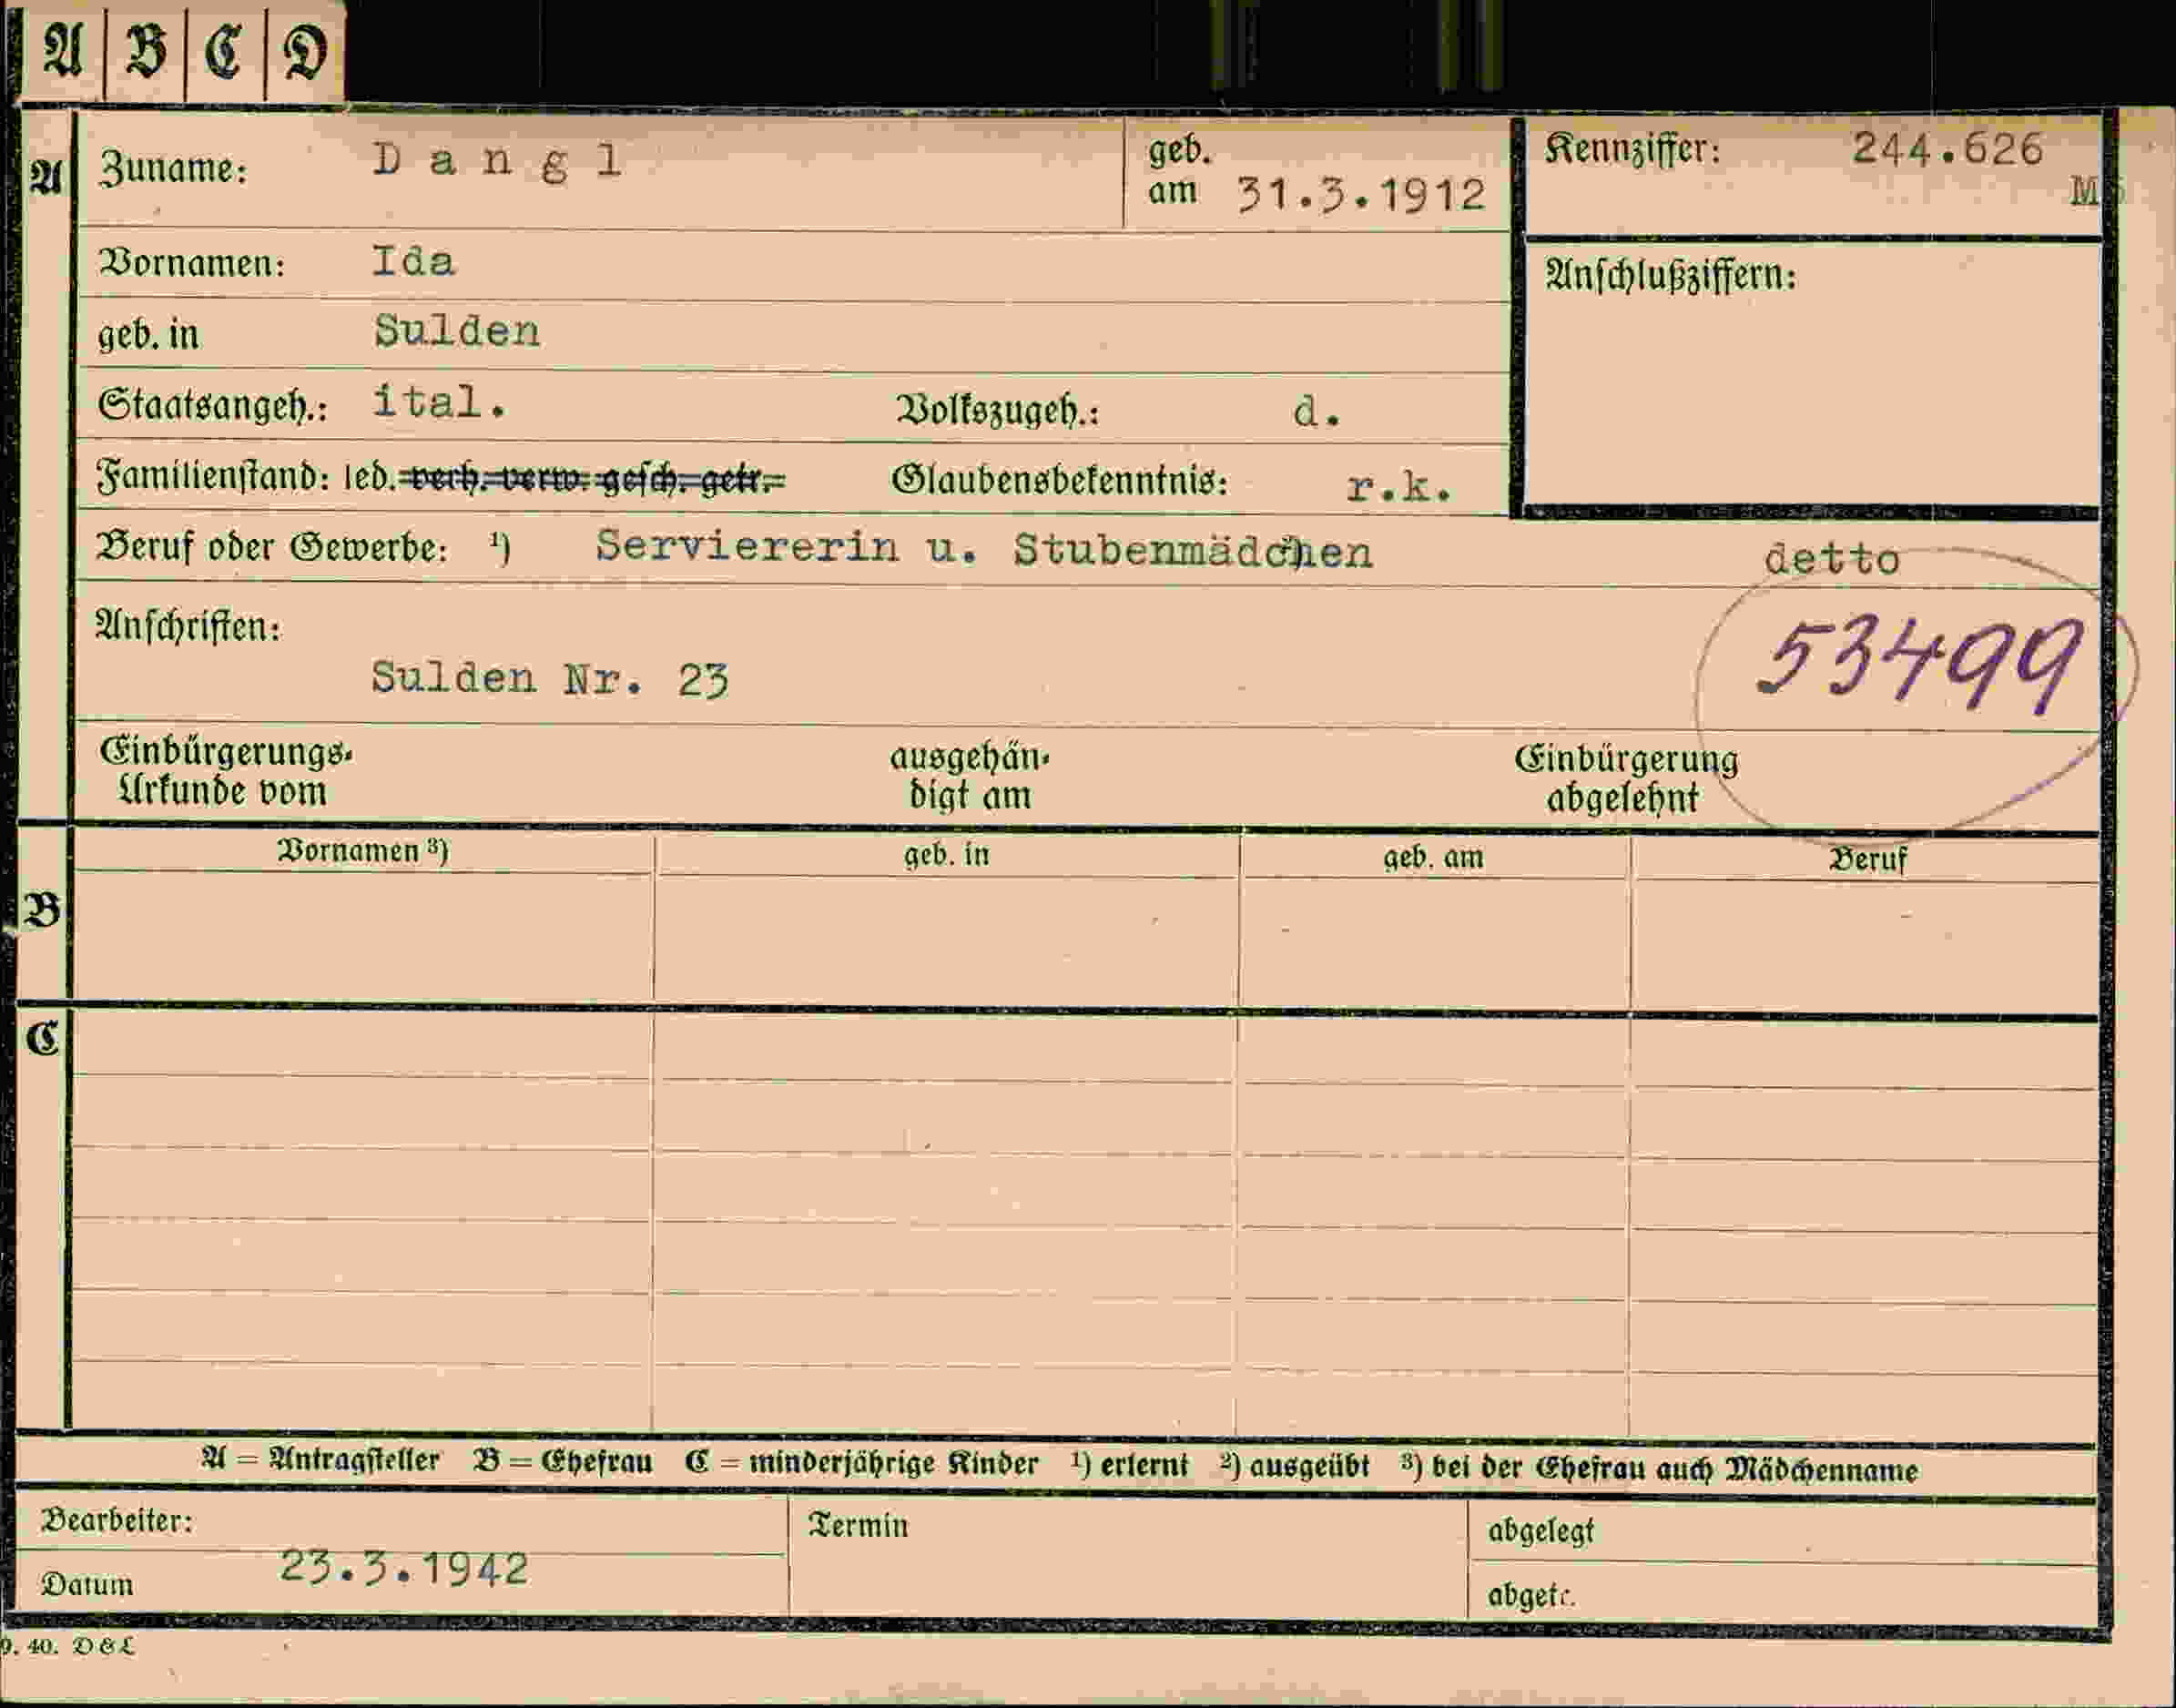 A B C D
A Zuname: Dangl geb. am 31.3.1912 Kennziffer: 244.626
M
Vornamen: Ida Anschlußziffern:
geb. in Sulden
Staatsangeh.: ital. Volkszugeh.: d.
Familienstand: led. verh. verw. gesch. getr. Glaubensbekenntnis: r.k.
Beruf oder Gewerbe: ¹) Serviererin u. Stubenmädchen detto
Anschriften: 53499
Sulden Nr. 23
Einbürgerungs- ausgehän- Einbürgerung
Urkunde vom digt am abgelehnt
B Vornamen ³) geb. in geb. am Beruf
C
A = Antragsteller B = Ehefrau C = minderjährige Kinder ¹) erlernt ²) ausgeübt ³) bei der Ehefrau auch Mädchenname
Bearbeiter: Termin abgelegt
Datum 23.3.1942 abgetr.
40. D&L